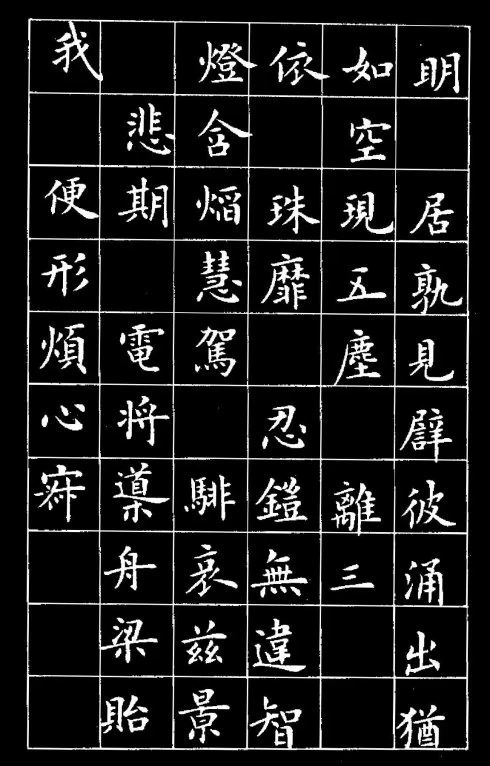 明居孰見辟彼涌出猶
如空現五塵離三
依珠靡忍鎧無違智
燈含焰慧駕騑哀茲景
悲期電将導舟梁貽
我便形煩心寂